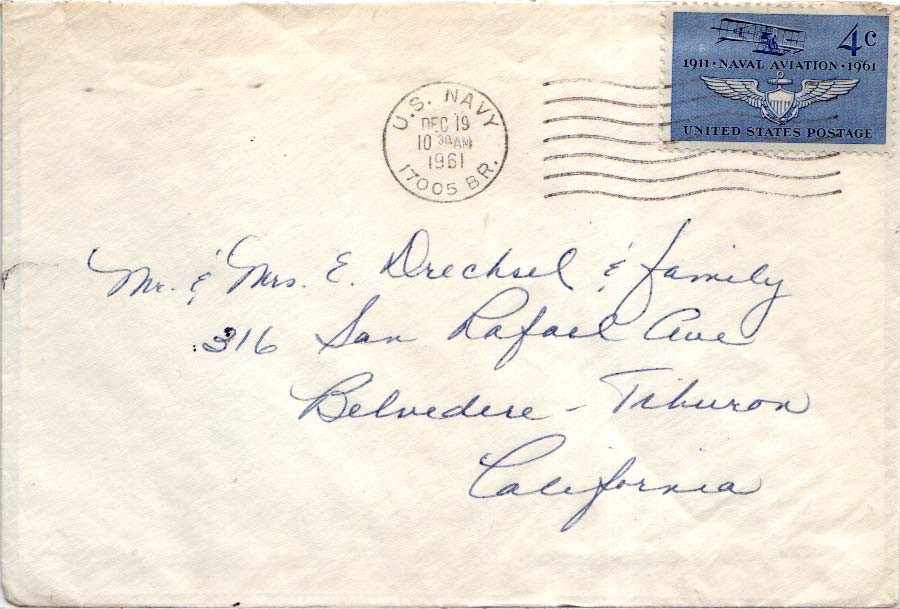 4c
1911 · NAVAL AVIATION · 1961
UNITED STATES POSTAGE
U.S. NAVY
DEC 19
10 30 AM
1961
17005 BR.
Mr. & Mrs. E. Drechsel & family
316 San Rafael Ave
Belvedere - Tiburon
California